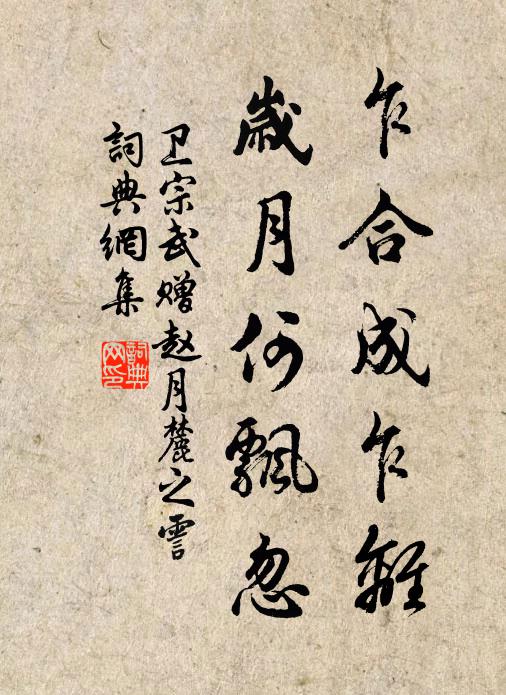 乍合成乍離
歲月何飄忽
卫宗武赠赵月麓之霅
詞典網集
詞典网印